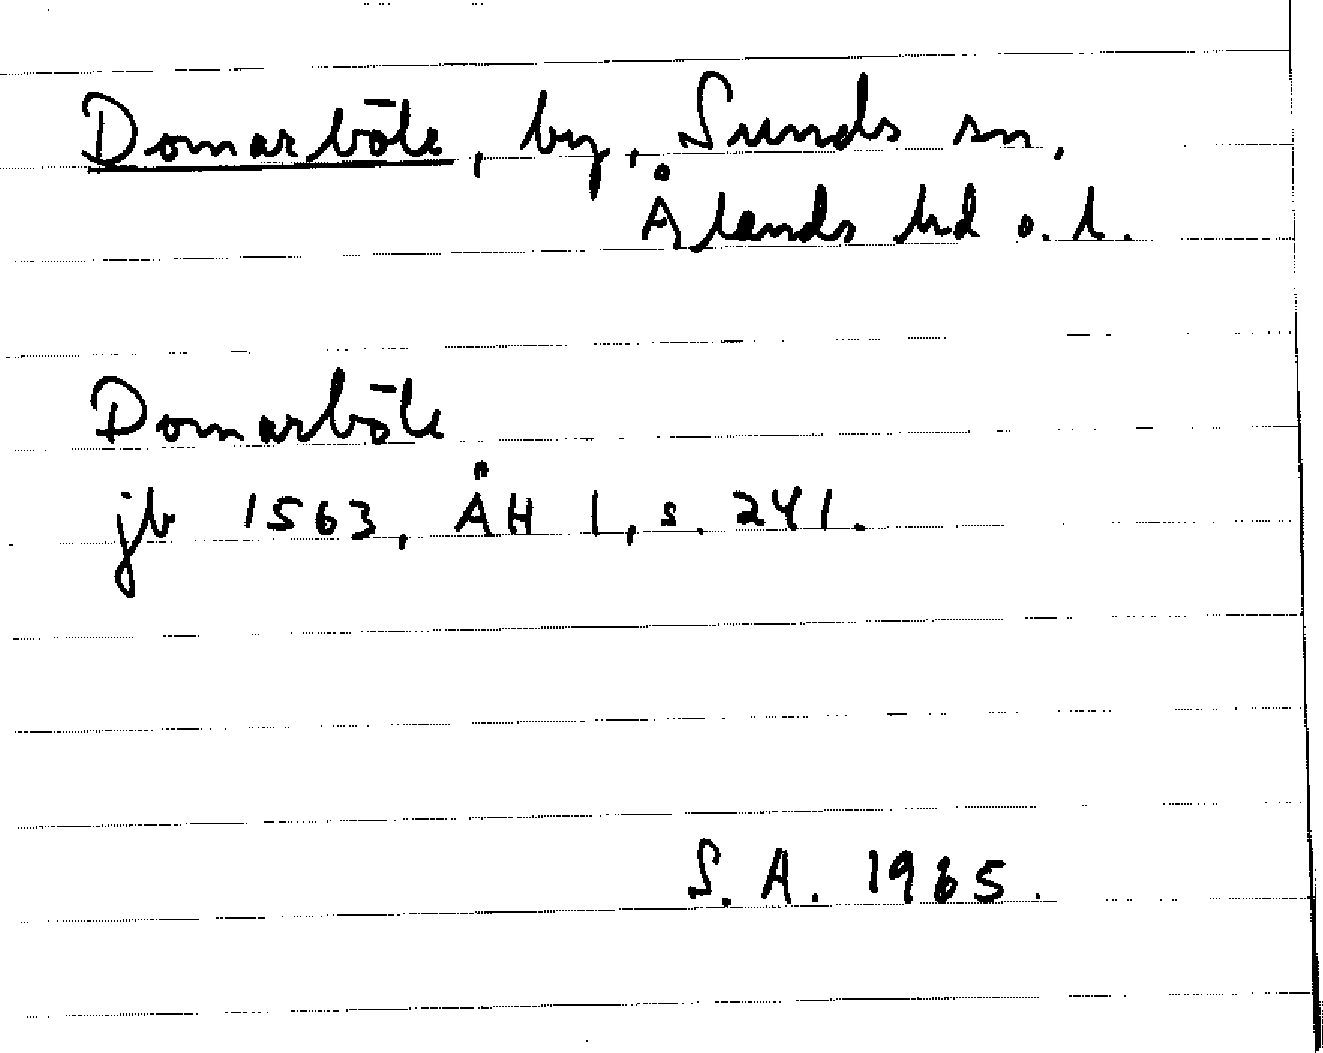 Domarböle, by, Sunds sn,
Ålands hd o. l.
Domarböle
jb 1563, ÅH I, s. 241.
S. A. 1965.